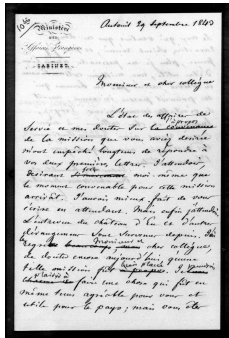 Ministère
des
Affaires Étrangères
CABINET
Auteuil 29 Septembre 1843
Monsieur et cher collègue
L'état des affaires de
et mes doutes sur
de la mission que vous aviez désirée
m'ont empêché longtems de répondre à
vos deux premières lettres. J'attendais,
désirant moi même que
le moment convenable pour cette mission
arrivât. J'aurois mieux fait de vous
écrire en attendant. Mais enfin j'attendois
L'entrevue du château d'Eu et d'autres
dérangemens sont survenus depuis. J'ai
Monsieur et cher collègue
de doute encore aujourd'hui qu'une
telle mission fût
faire une chose qui fût en
même tems agréable pour vous et
utile pour le pays; mais